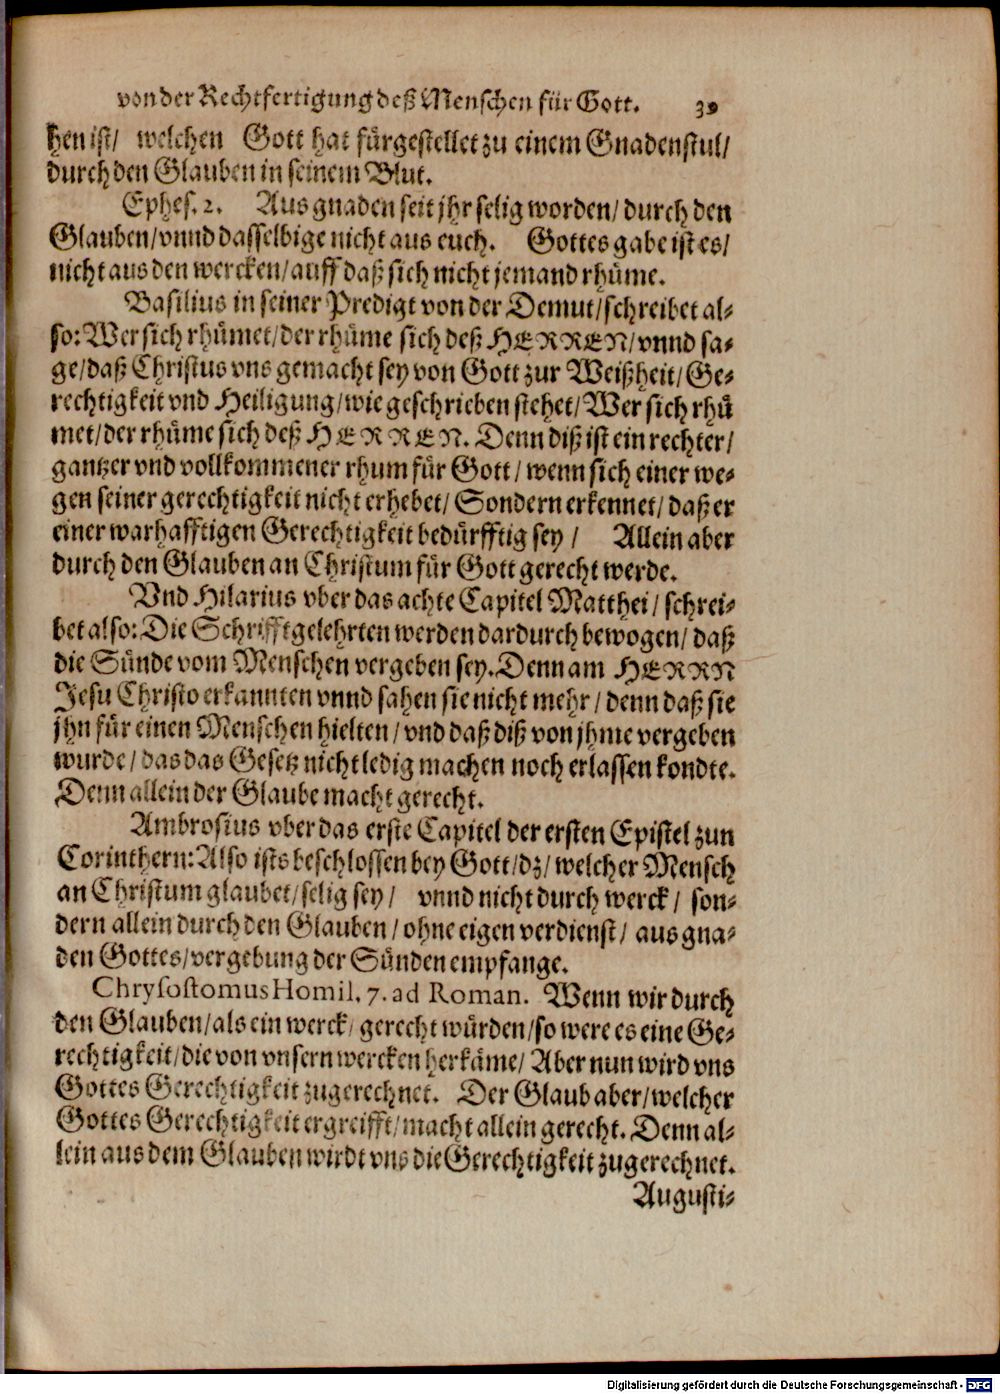 von der Rechtfertigung deß Menschen für Gott. 39
hen ist/ welchen Gott hat fürgestellet zu einem Gnadenstul/
durch den Glauben in seinem Blut.
Ephes. 2. Aus gnaden seit jhr selig worden/ durch den
Glauben/ vnnd dasselbige nicht aus euch. Gottes gabe ist es/
nicht aus den wercken/ auff daß sich nicht jemand rhüme.
Basilius in seiner Predigt von der Demut/ schreibet al-
so: Wer sich rhümet/ der rhüme sich deß HERREN/ vnnd sa-
ge/ daß Christus vns gemacht sey von Gott zur Weißheit/ Ge-
rechtigkeit vnd Heiligung/ wie geschrieben stehet/ Wer sich rhü
met/ der rhüme sich deß HERREN. Denn diß ist ein rechter/
gantzer vnd vollkommener rhum für Gott/ wenn sich einer we-
gen seiner gerechtigkeit nicht erhebet/ Sondern erkennet/ daß er
einer warhafftigen Gerechtigkeit bedürfftig sey/ Allein aber
durch den Glauben an Christum für Gott gerecht werde.
Vnd Hilarius vber das achte Capitel Matthei/ schrei-
bet also: Die Schrifftgelehrten werden dardurch bewogen/ daß
die Sünde vom Menschen vergeben sey. Denn am HERRN
Jesu Christo erkannten vnnd sahen sie nicht mehr/ denn daß sie
jhn für einen Menschen hielten/ vnd daß diß von jhme vergeben
wurde/ das das Gesetz nicht ledig machen noch erlassen kondte.
Denn allein der Glaube macht gerecht.
Ambrosius vber das erste Capitel der ersten Epistel zun
Corinthern: Also ists beschlossen bey Gott/ dz/ welcher Mensch
an Christum glaubet/ selig sey/ vnnd nicht durch werck/ son-
dern allein durch den Glauben/ ohne eigen verdienst/ aus gna-
den Gottes/ vergebung der Sünden empfange.
Chrysostomus Homil. 7. ad Roman. Wenn wir durch
den Glauben/ als ein werck/ gerecht würden/ so were es eine Ge-
rechtigkeit/ die von vnsern wercken herkäme/ Aber nun wird vns
Gottes Gerechtigkeit zugerechnet. Der Glaub aber/ welcher
Gottes Gerechtigkeit ergreifft/ macht allein gerecht. Denn al-
lein aus dem Glauben wirdt vns die Gerechtigkeit zugerechnet.
Augusti-
Digitalisierung gefördert durch die Deutsche Forschungsgemeinschaft - DFG